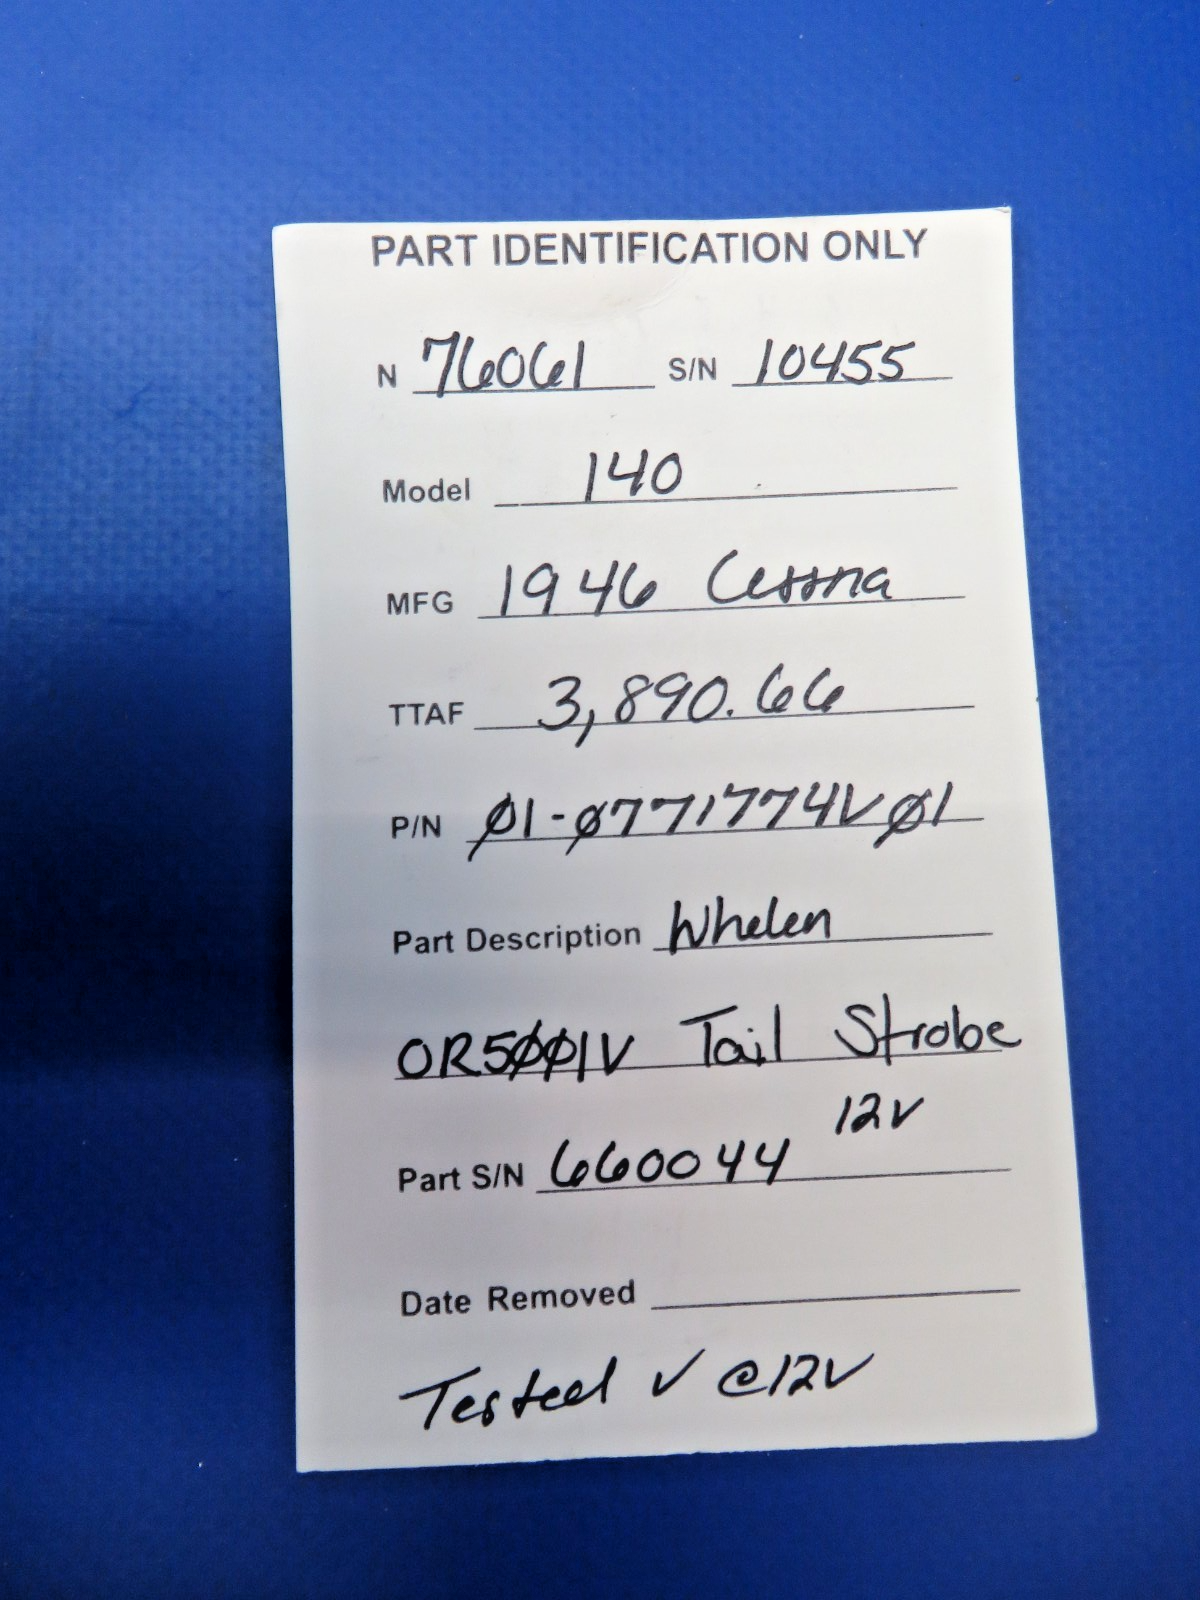 PART IDENTIFICATION ONLY
N 76061 S/N 10455
Model 140
MFG 1946 Cessna
TTAF 3,890.66
P/N Ø1-Ø771774VØ1
Part Description Whelen
OR5ØØ1V Tail Strobe
12V
Part S/N 660044
Date Removed
Tested ✓ @12V